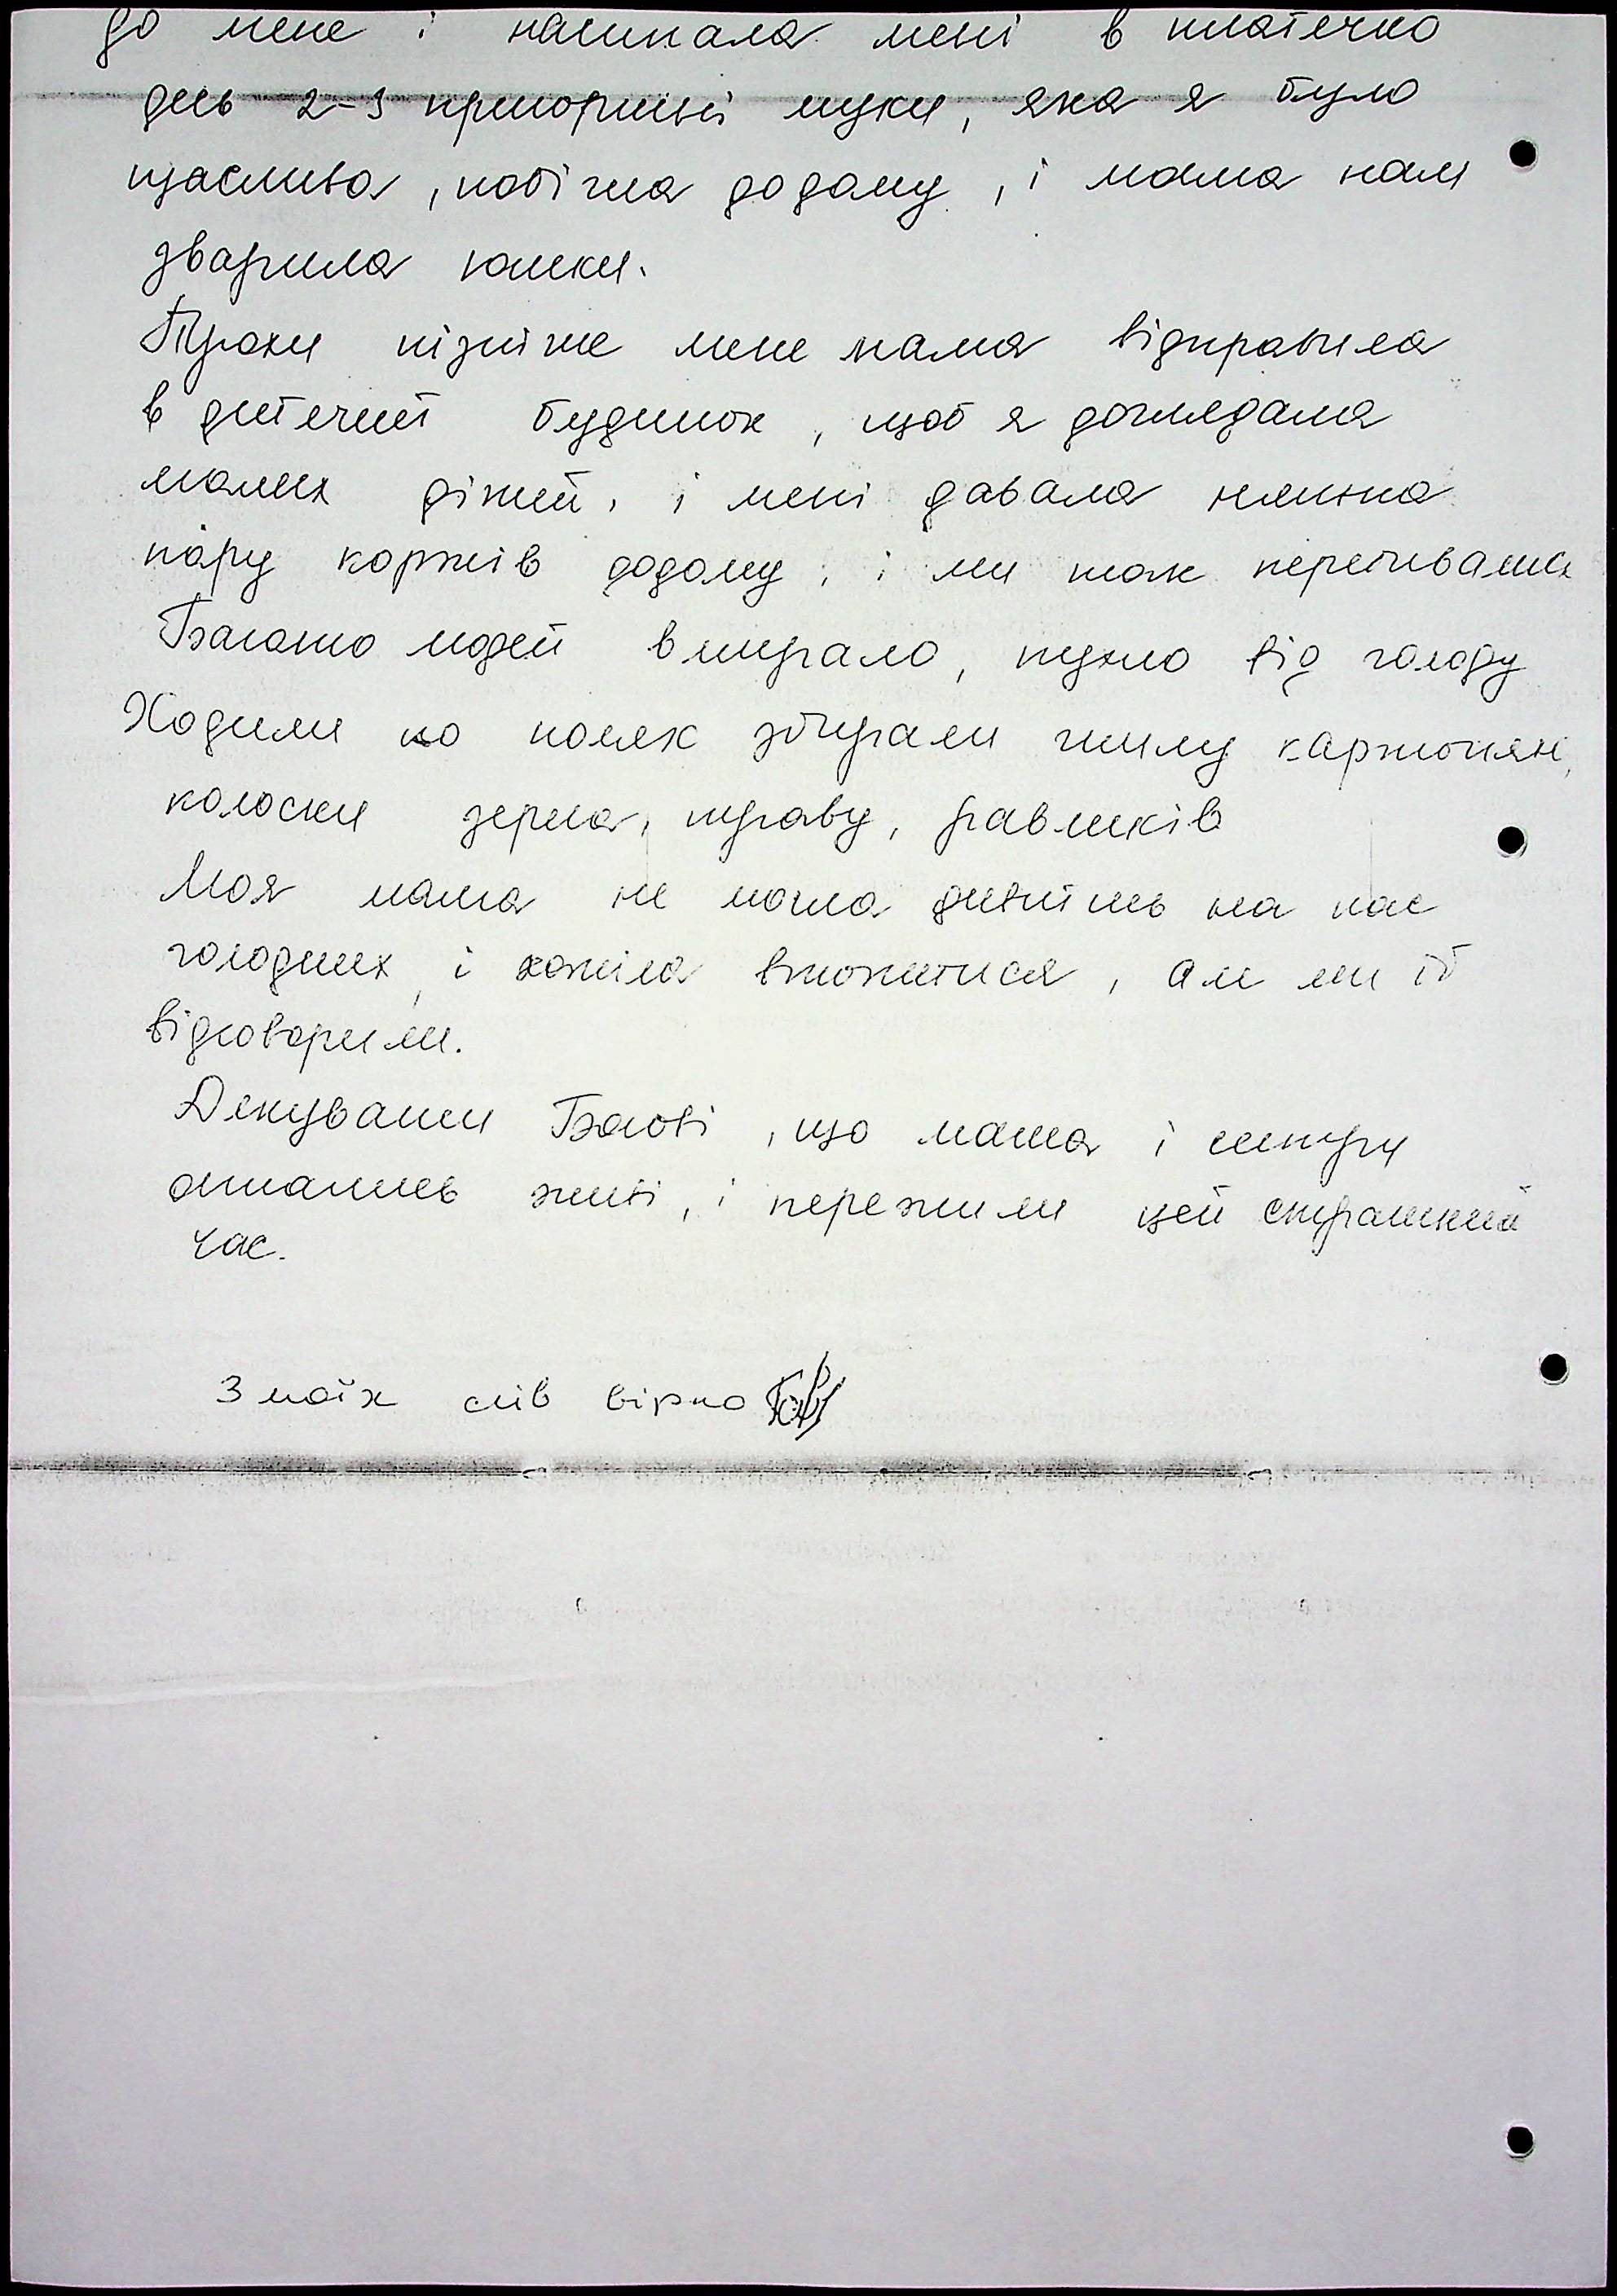 до мене і насипала мені в платечко
десь 2-3 пригоршні муки, яка я було
щаслива, побігла додому, і мама нам
зварила юшки.
Трохи пізніше мене мама відправила
в дитячий будинок, щоб я доглядала
малих дітей, і мені давала нянька
пару коржів додому, і ми так перебивались
Багато людей вмирало, пухло від голоду
Ходили по полях збирали гнилу картоплю,
колоски зерна, траву, равликів
Моя мама не могла дивитись на нас
голодних, і хотіла втопитися, але ми її
відговорили.
Дякувати Богові, що мама і сестри
остались живі, і пережили цей страшний
час.
З моїх слів вірно